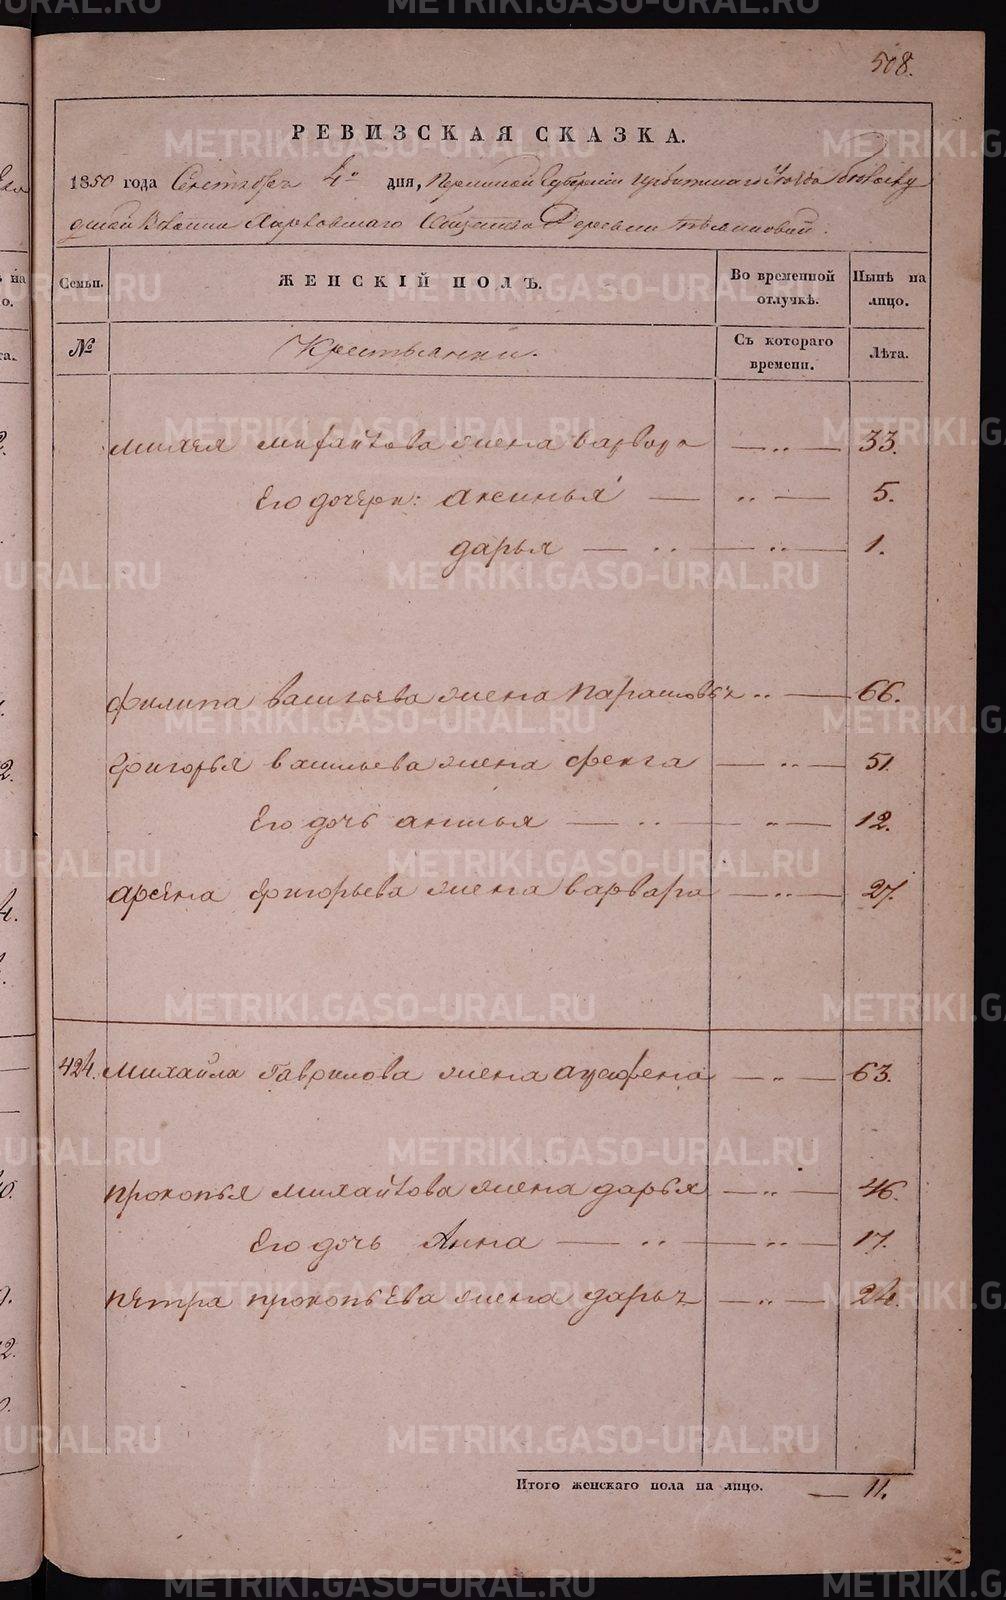 508.
РЕВИЗСКАЯ СКАЗКА.
1850 года Сентября 4го дня, Пермской Губернии Ирбитскаго Уезда
Волости Харловскаго Общества Деревни
Семьи. ЖЕНСКІЙ ПОЛЪ. Во временной отлучкѣ. Нынѣ на лицо.
№ Крестьянки. Съ котораго времени. Лѣта.
Михея Михайлова жена Варвора — „ — 33.
Его дочери: аксинья — „ — 5.
дарья — „ — „ — 1.
филипа васильева жена Парасковья „ — 66.
григорья васильева жена фекла — „ — 51.
Его дочь анисья — „ — „ — 12.
арсена григорьева жена варвара — „ — 27.
424. Михаила гаврилова жена — „ — 63.
прокопья михайлова жена дарья — „ — 46.
Его дочь Анна — „ — „ — 17.
петра прокопьева жена дарья — „ — 24.
Итого женскаго пола на лицо. — 11.
METRIKI.GASO-URAL.RU